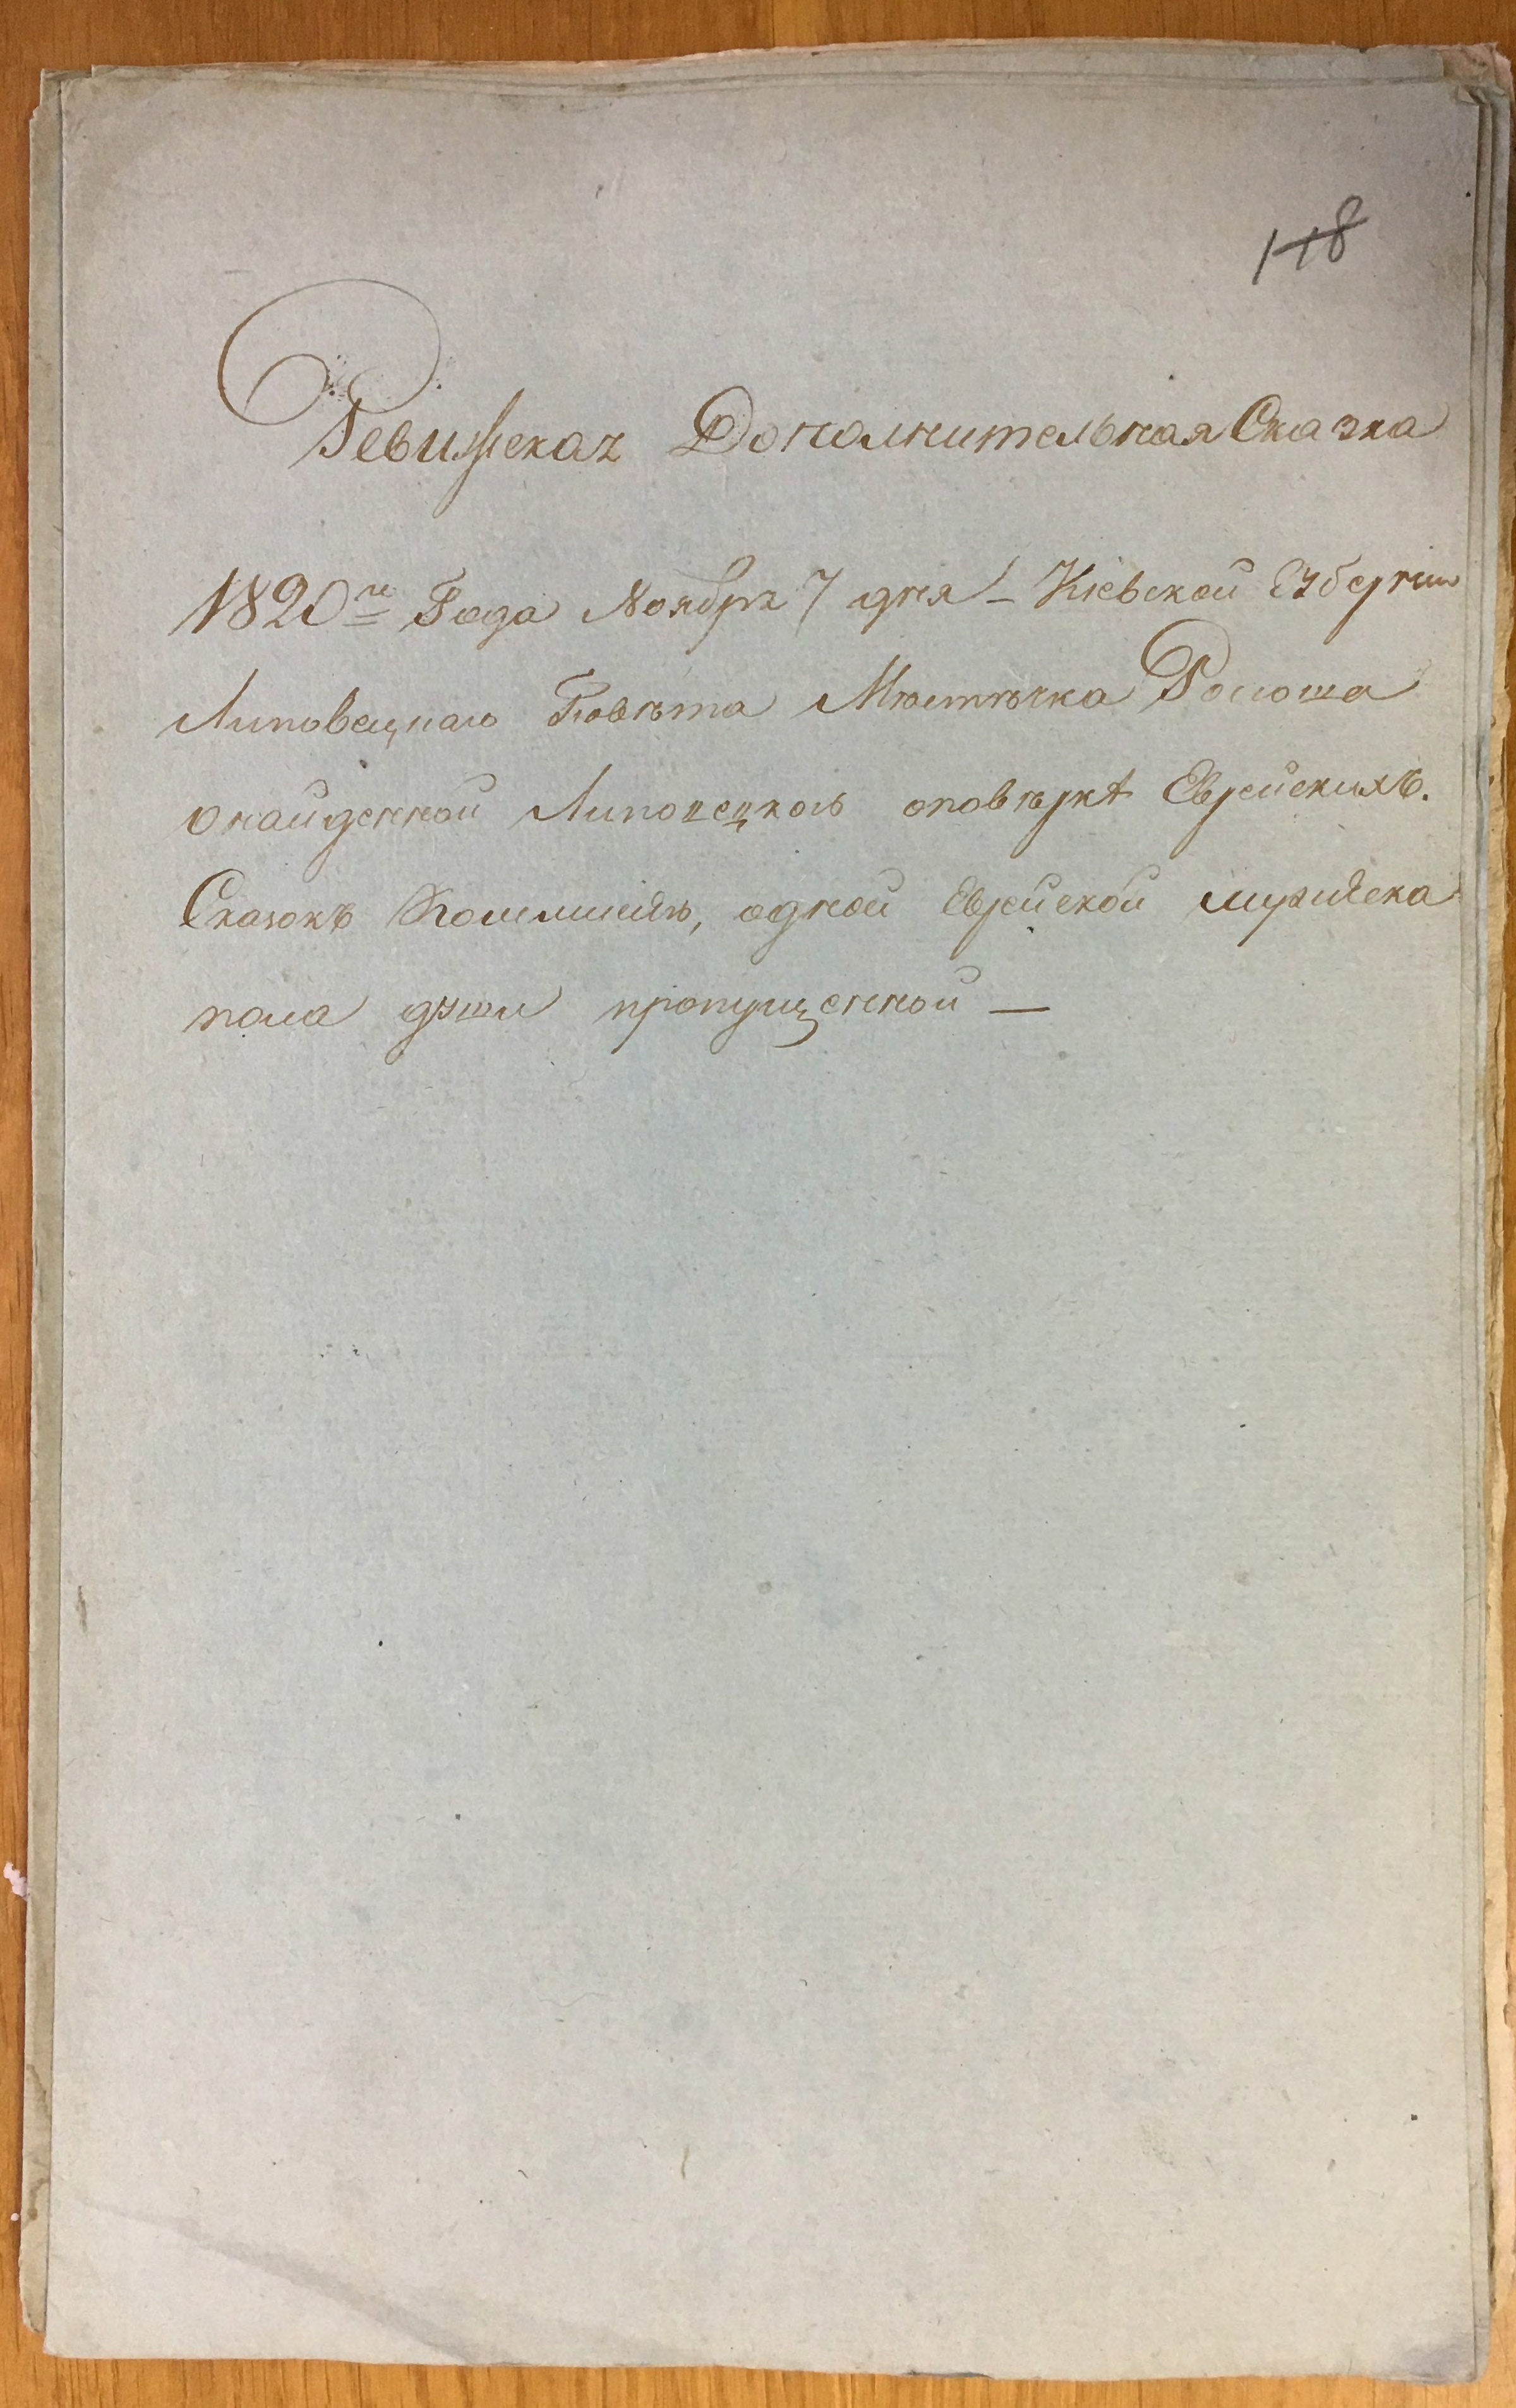 118
Ревизская Дополнительная Сказка
1820го Года Ноября 7 дня – Кіевской Губерніи
Липовецкаго Повѣта Мѣстѣчка Росоша
онайденной Липовецкою оповѣркѣ Еврейскихъ
Сказокъ Коммисіею, одной Еврейской мужеска
пола души пропущенной —